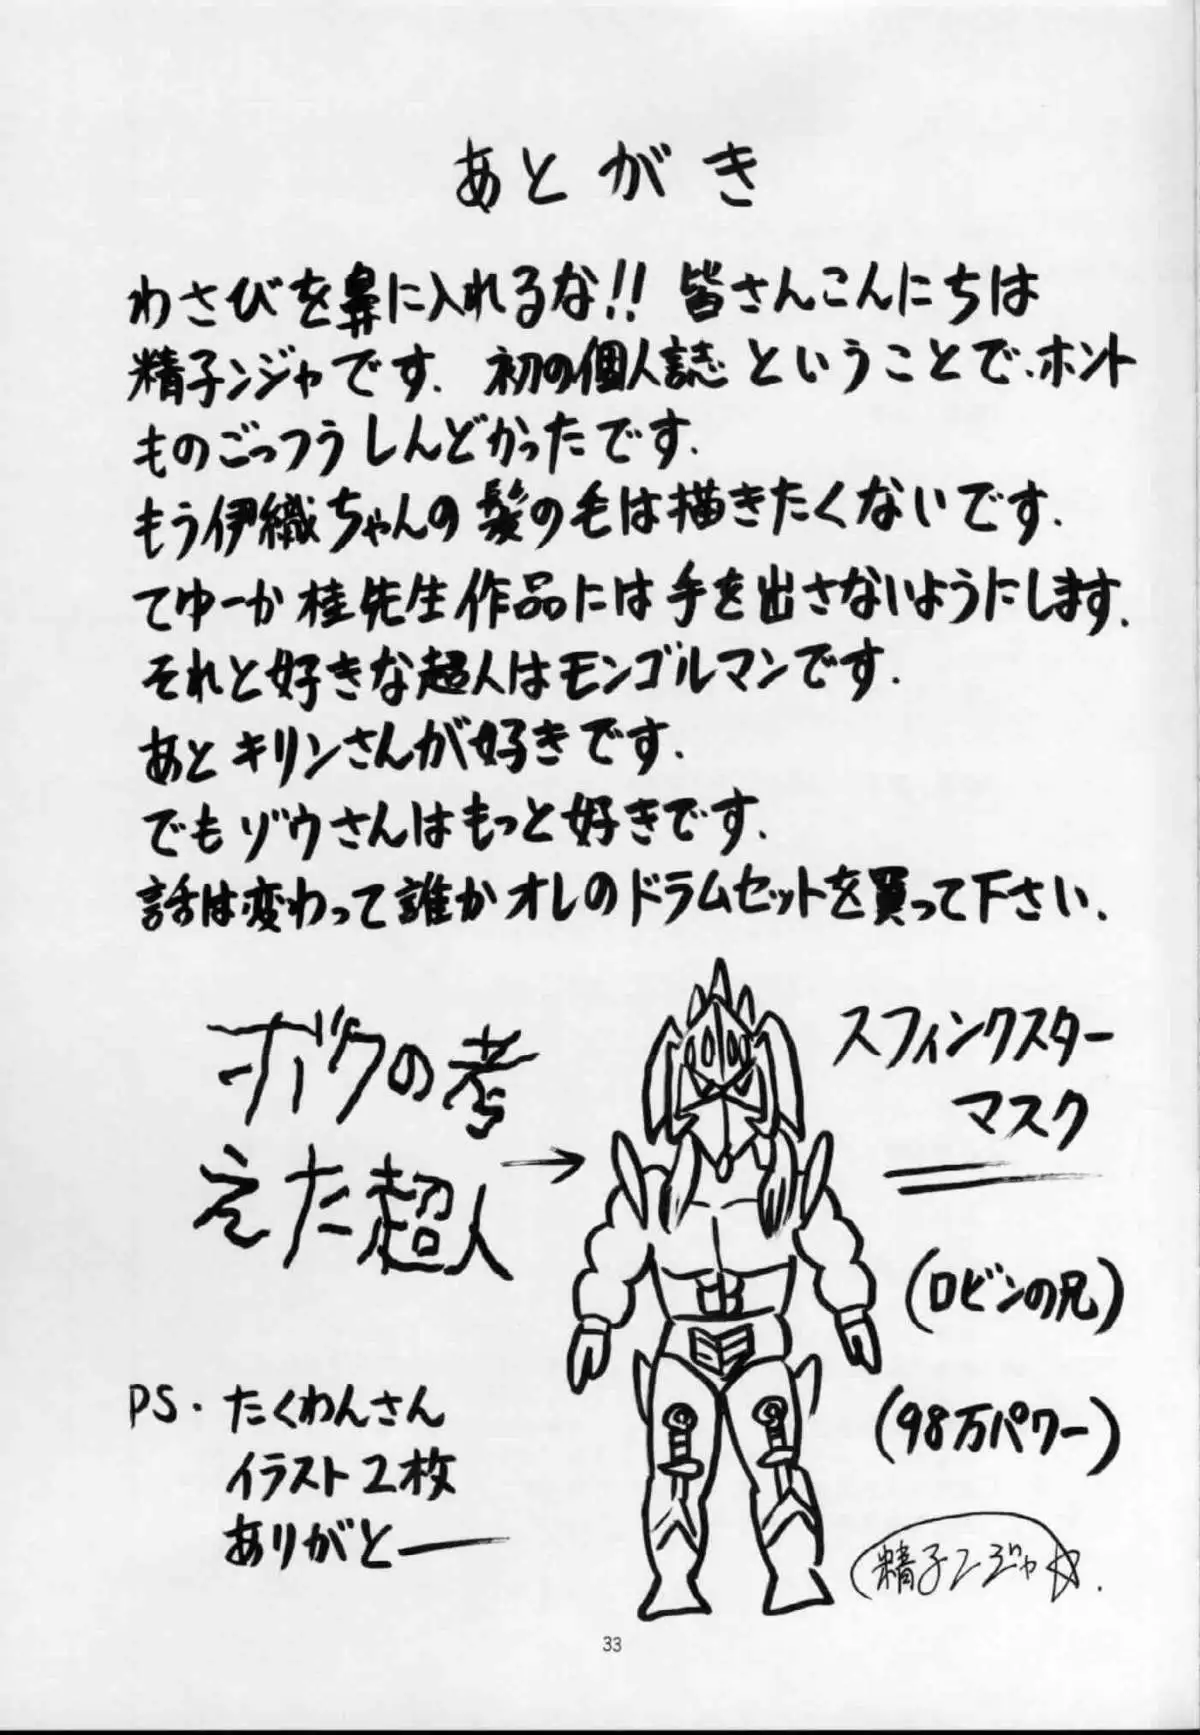 あとがき
わさびを鼻に入れるな!! 皆さんこんにちは
精子ンジャです. 初の個人誌ということで、ホント
ものごっつうしんどかったです.
もう伊織ちゃんの髪の毛は描きたくないです.
てゆーか桂先生作品には手を出さないようにします.
それと好きな超人はモンゴルマンです.
あとキリンさんが好きです.
でもゾウさんはもっと好きです.
話は変わって誰かオレのドラムセットを買って下さい.
ボクの考
えた超人
→
スフィンクスター
マスク
(ロビンの兄)
(98万パワー)
PS. たくわんさん
イラスト2枚
ありがとー
精子ンジャ☆.
33